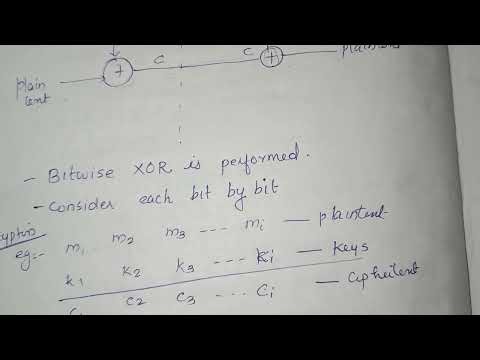 C C
plain
- Bitwise XOR is performed.
- Consider each bit by bit
eg:- m1 m2 m3 --- mi — plaintext
k1 k2 k3 --- ki — keys
c2 c3 --- ci — ciphertext